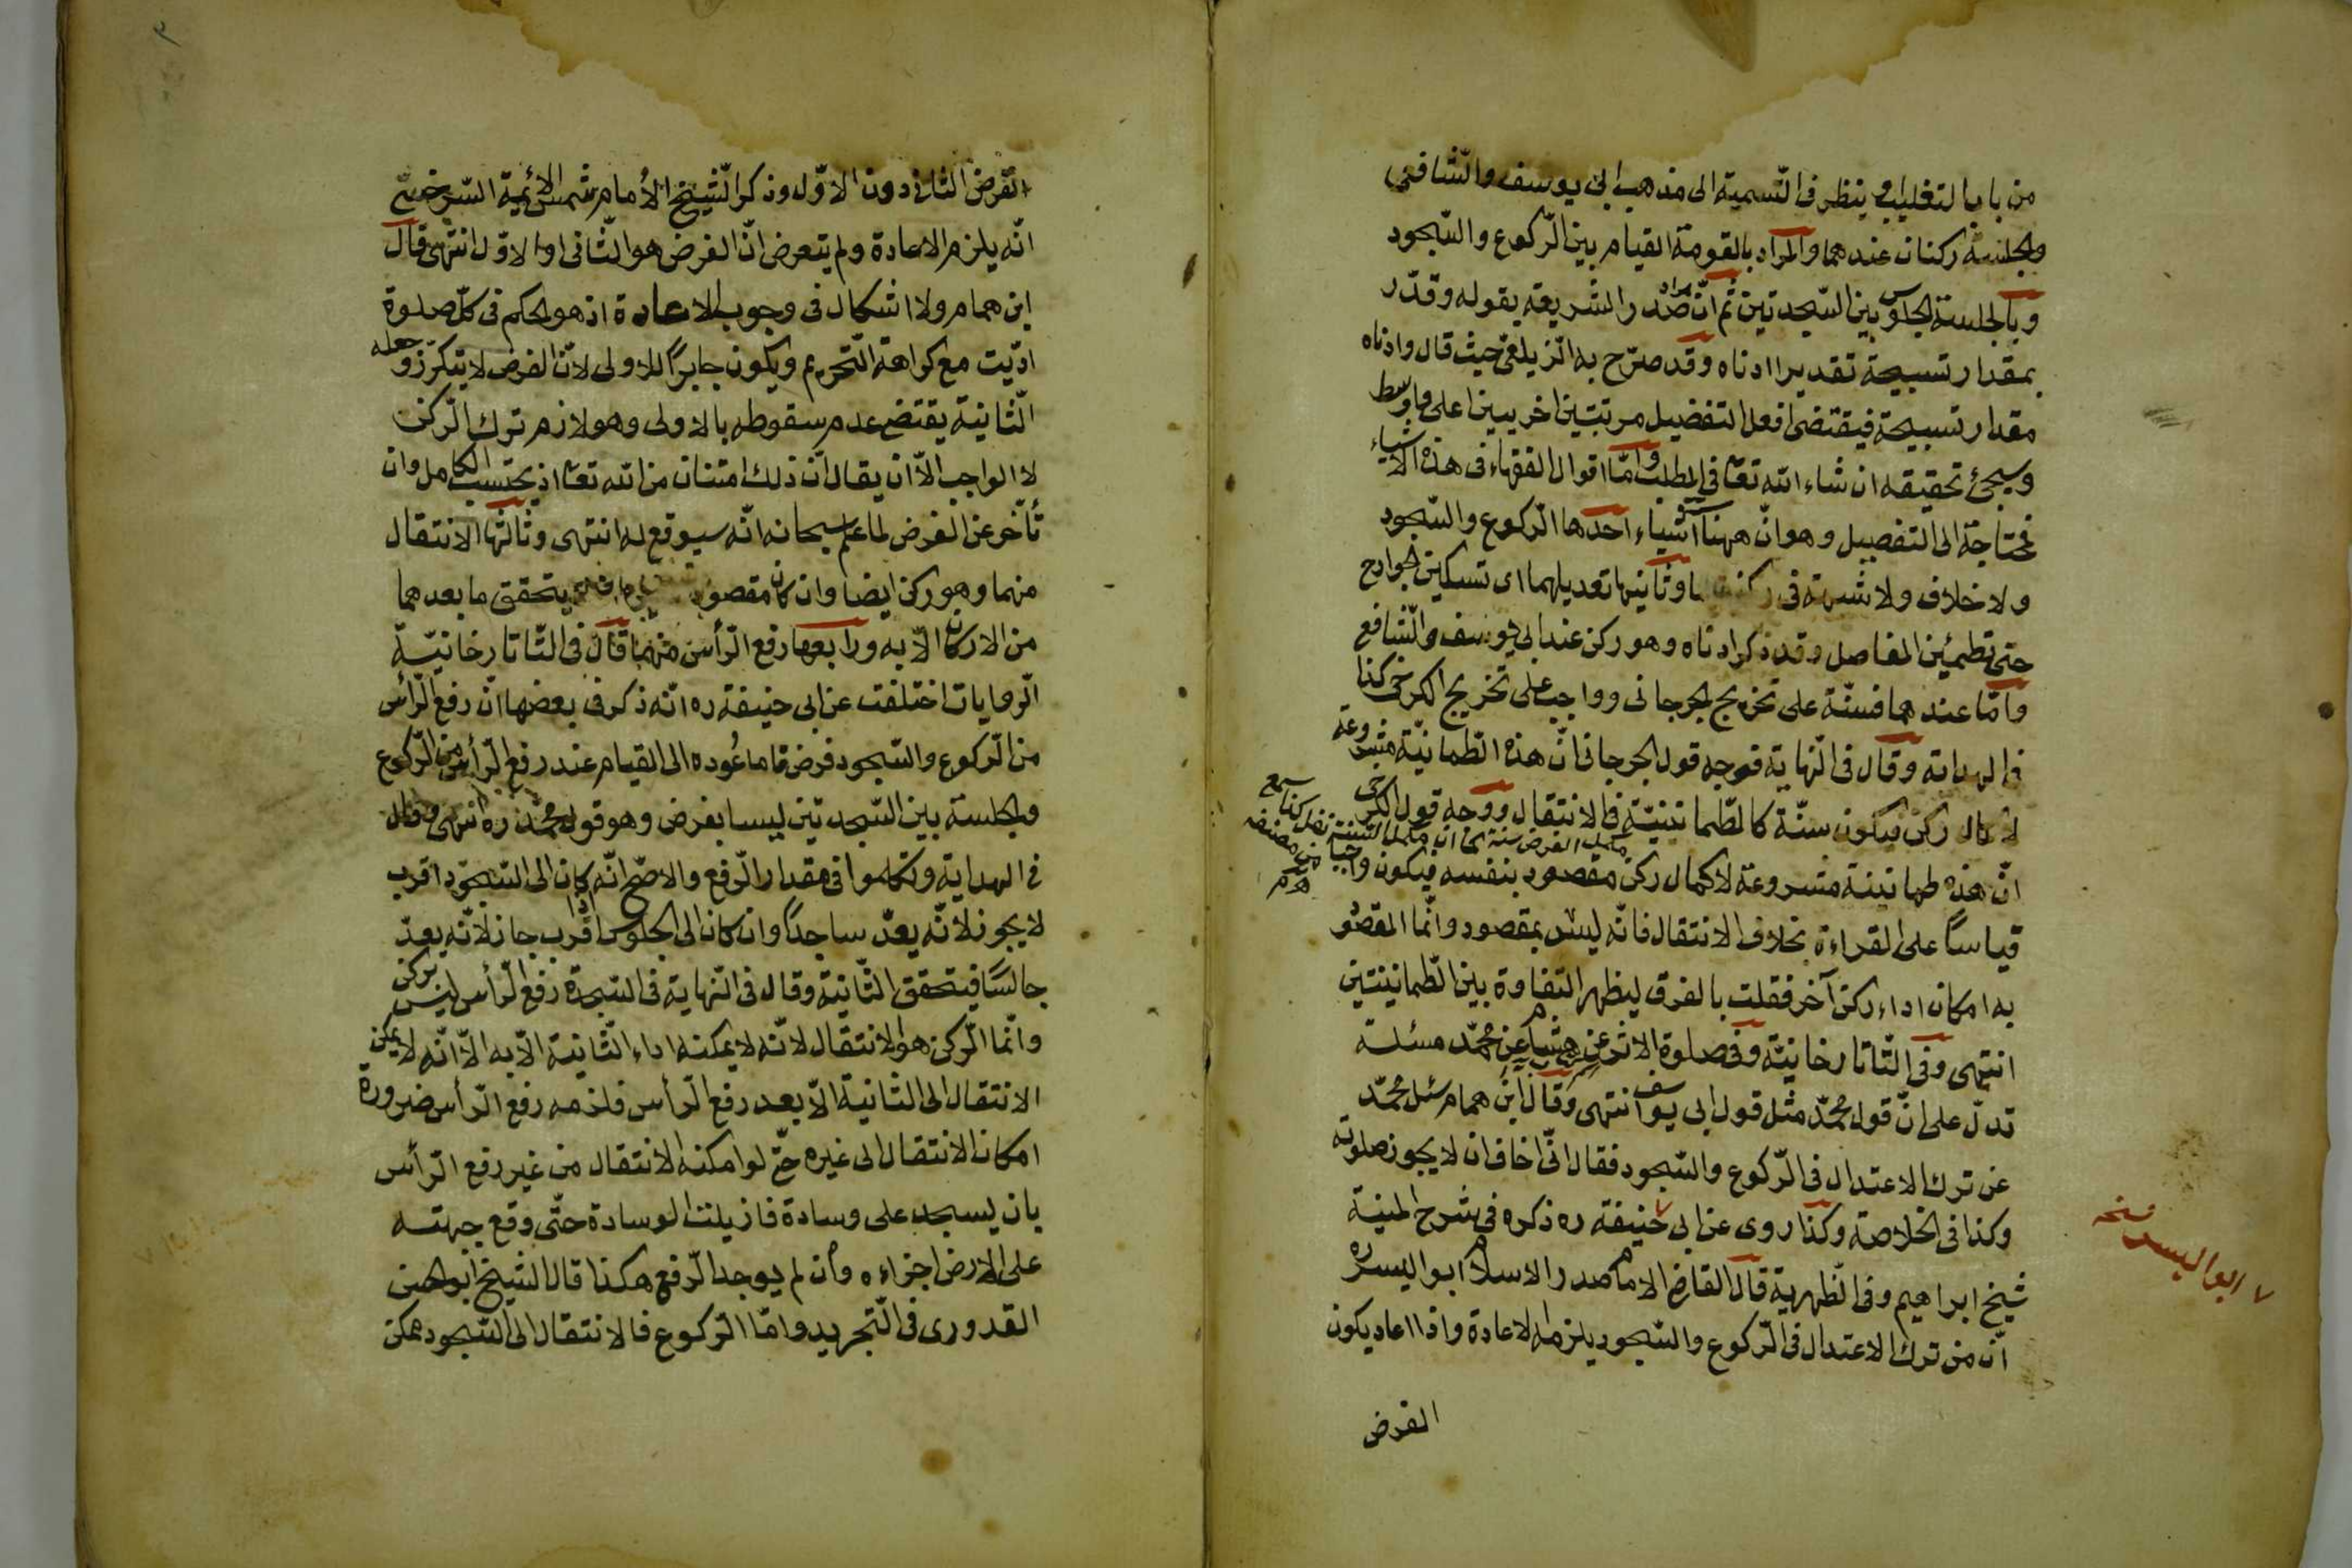 من باب التغليب او ينظر فى التسمية الى مذهب ابى يوسف والشافعى
والجلسة ركنان عندهما والمراد بالقومة القيام بين الركوع والسجود
وبالجلسة الجلوس بين السجدتين ثم ان مراد صدر الشريعة بقوله وقدّر
بمقدار تسبيحة تقدير ادناه وقد صرّح به الزيلعى حيث قال وادناه
مقدار تسبيحة فيقتضى افعل التفضيل مرتبتين اخريين اعلى واوسط
وسيجئ تحقيقه ان شاء الله تعا فى المطلب وامّا اقوال الفقهاء فى هذه الاشياء
فمحتاجة الى التفصيل وهو انّ ههنا اشياء احدها الركوع والسجود
ولا خلاف ولا شبهة فى وثانيها تعديلهما اى تسكين الجوارح
حتى تطمئن المفاصل وقد ذكر ادناه وهو ركن عند ابى يوسف والشافع
وامّا عندهما فسنّة على تخريج الجرجانى وواجب على تخريج الكرخى كذا
فى الهداية وقال فى النهاية فوجه قول الجرجانى انّ هذه الطمانينة مشروعة
لاكمال ركن فيكون سنّة كالطمانينة فى الانتقال ووجه قول الكرخى
انّ هذه طمانينة مشروعة لاكمال ركن مقصود بنفسه فيكون واجبا
قياسًا على القراءة بخلاف الانتقال فانّه ليس بمقصود وانّما المقصود
به امكان اداء ركن آخر فقلت بالفرق ليظهر التفاوة بين الطمانينتين
انتهى وفى التاتارخانيّة وفى صلوة الاثر عن هشام عن محمّد مسئلة
تدلّ على انّ قول محمّد مثل قول ابى يوسف انتهى وقال ابن همام سئل محمّد
عن ترك الاعتدال فى الركوع والسجود فقال انّى اخاف ان لا يجوز صلوته
وكذا فى الخلاصة وكذا روى عن ابى حنيفة ره ذكره فى شرح المنية
شيخ ابراهيم وفى الظهرية قال القاضى الامام صدر الاسلام ابو اليسر ره
انّ من ترك الاعتدال فى الركوع والسجود يلزمه الاعادة واذا اعاد يكون
الفرض
مكمل الفرض سنة كما ان مكمل السنة نفل كذا سمع
من مصنفه
٧ ابو اليسر نسخه
٣
الفرض الثانى دون الاوّل وذكر الشيخ الامام شمس الائمية السرخسىّ
انّه يلزم الاعادة ولم يتعرض انّ الفرض هو الثانى او الاوّل انتهى قال
ابن همام ولا اشكال فى وجوب الاعادة اذ هو الحكم فى كلّ صلوة
ادّيت مع كراهة التحريم ويكون جابرًا للاولى لانّ الفرض لا يتكرّر وجعله
الثانية يقتضى عدم سقوطه بالاولى وهو لازم ترك الركن
لا الواجب الاّ ان يقال انّ ذلك امتنان من الله تعا اذ يحتسب الكامل وان
تأخّر عن الفرض لما علم سبحانه انّه سيوقع له انتهى وثالثها الانتقال
منهما وهو ركن ايضا وان كان مقصود يتحقق ما بعدهما
من الاركان الاّ به ورابعها رفع الرأس منهما قال فى التاتارخانيّة
الروايات اختلفت عن ابى حنيفة ره انّه ذكر فى بعضها انّ رفع الرأس
من الركوع والسجود فرض فاما عوده الى القيام عند رفع الرأس من الركوع
والجلسة بين السجدتين ليسا بفرض وهو قول محمّد ره انتهى وقال
فى الهداية وتكلموا فى مقدار الرفع والاصحّ انّه اذا كان الى السجود اقرب
لا يجوز لانّه يعدّ ساجدًا وان كان الى الجلوس اقرب جاز لانّه يعدّ
جالسًا فيتحقق الثانية وقال فى النهاية فى السجدة رفع الرأس ليس بركن
وانّما الركن هو الانتقال لانّه لا يمكنه اداء الثانية الاّ به الاّ انّه لا يمكن
الانتقال الى الثانية الاّ بعد رفع الرأس فلزمه رفع الرأس ضرورة
امكان الانتقال الى غيره حتّى لو امكنه الانتقال من غير رفع الرأس
بان يسجد على وسادة فازيلت الوسادة حتّى وقع جبهته
على الارض اجزاءه وان لم يوجد الرفع هكذا قال الشيخ ابو الحسن
القدورى فى التجريد وامّا الركوع فالانتقال الى السجود ممكن